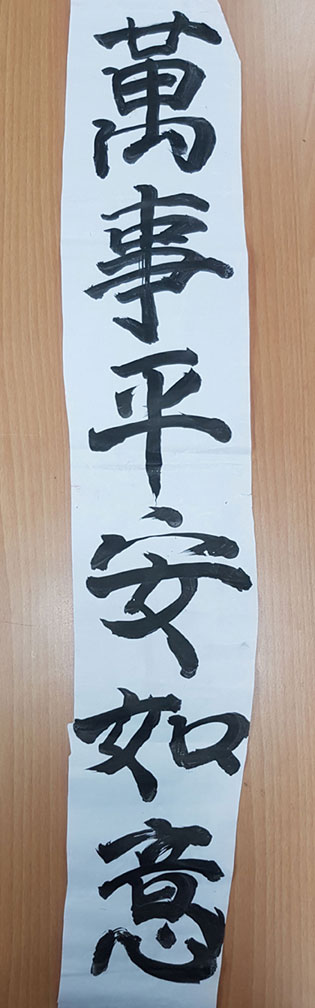 萬事平安如意